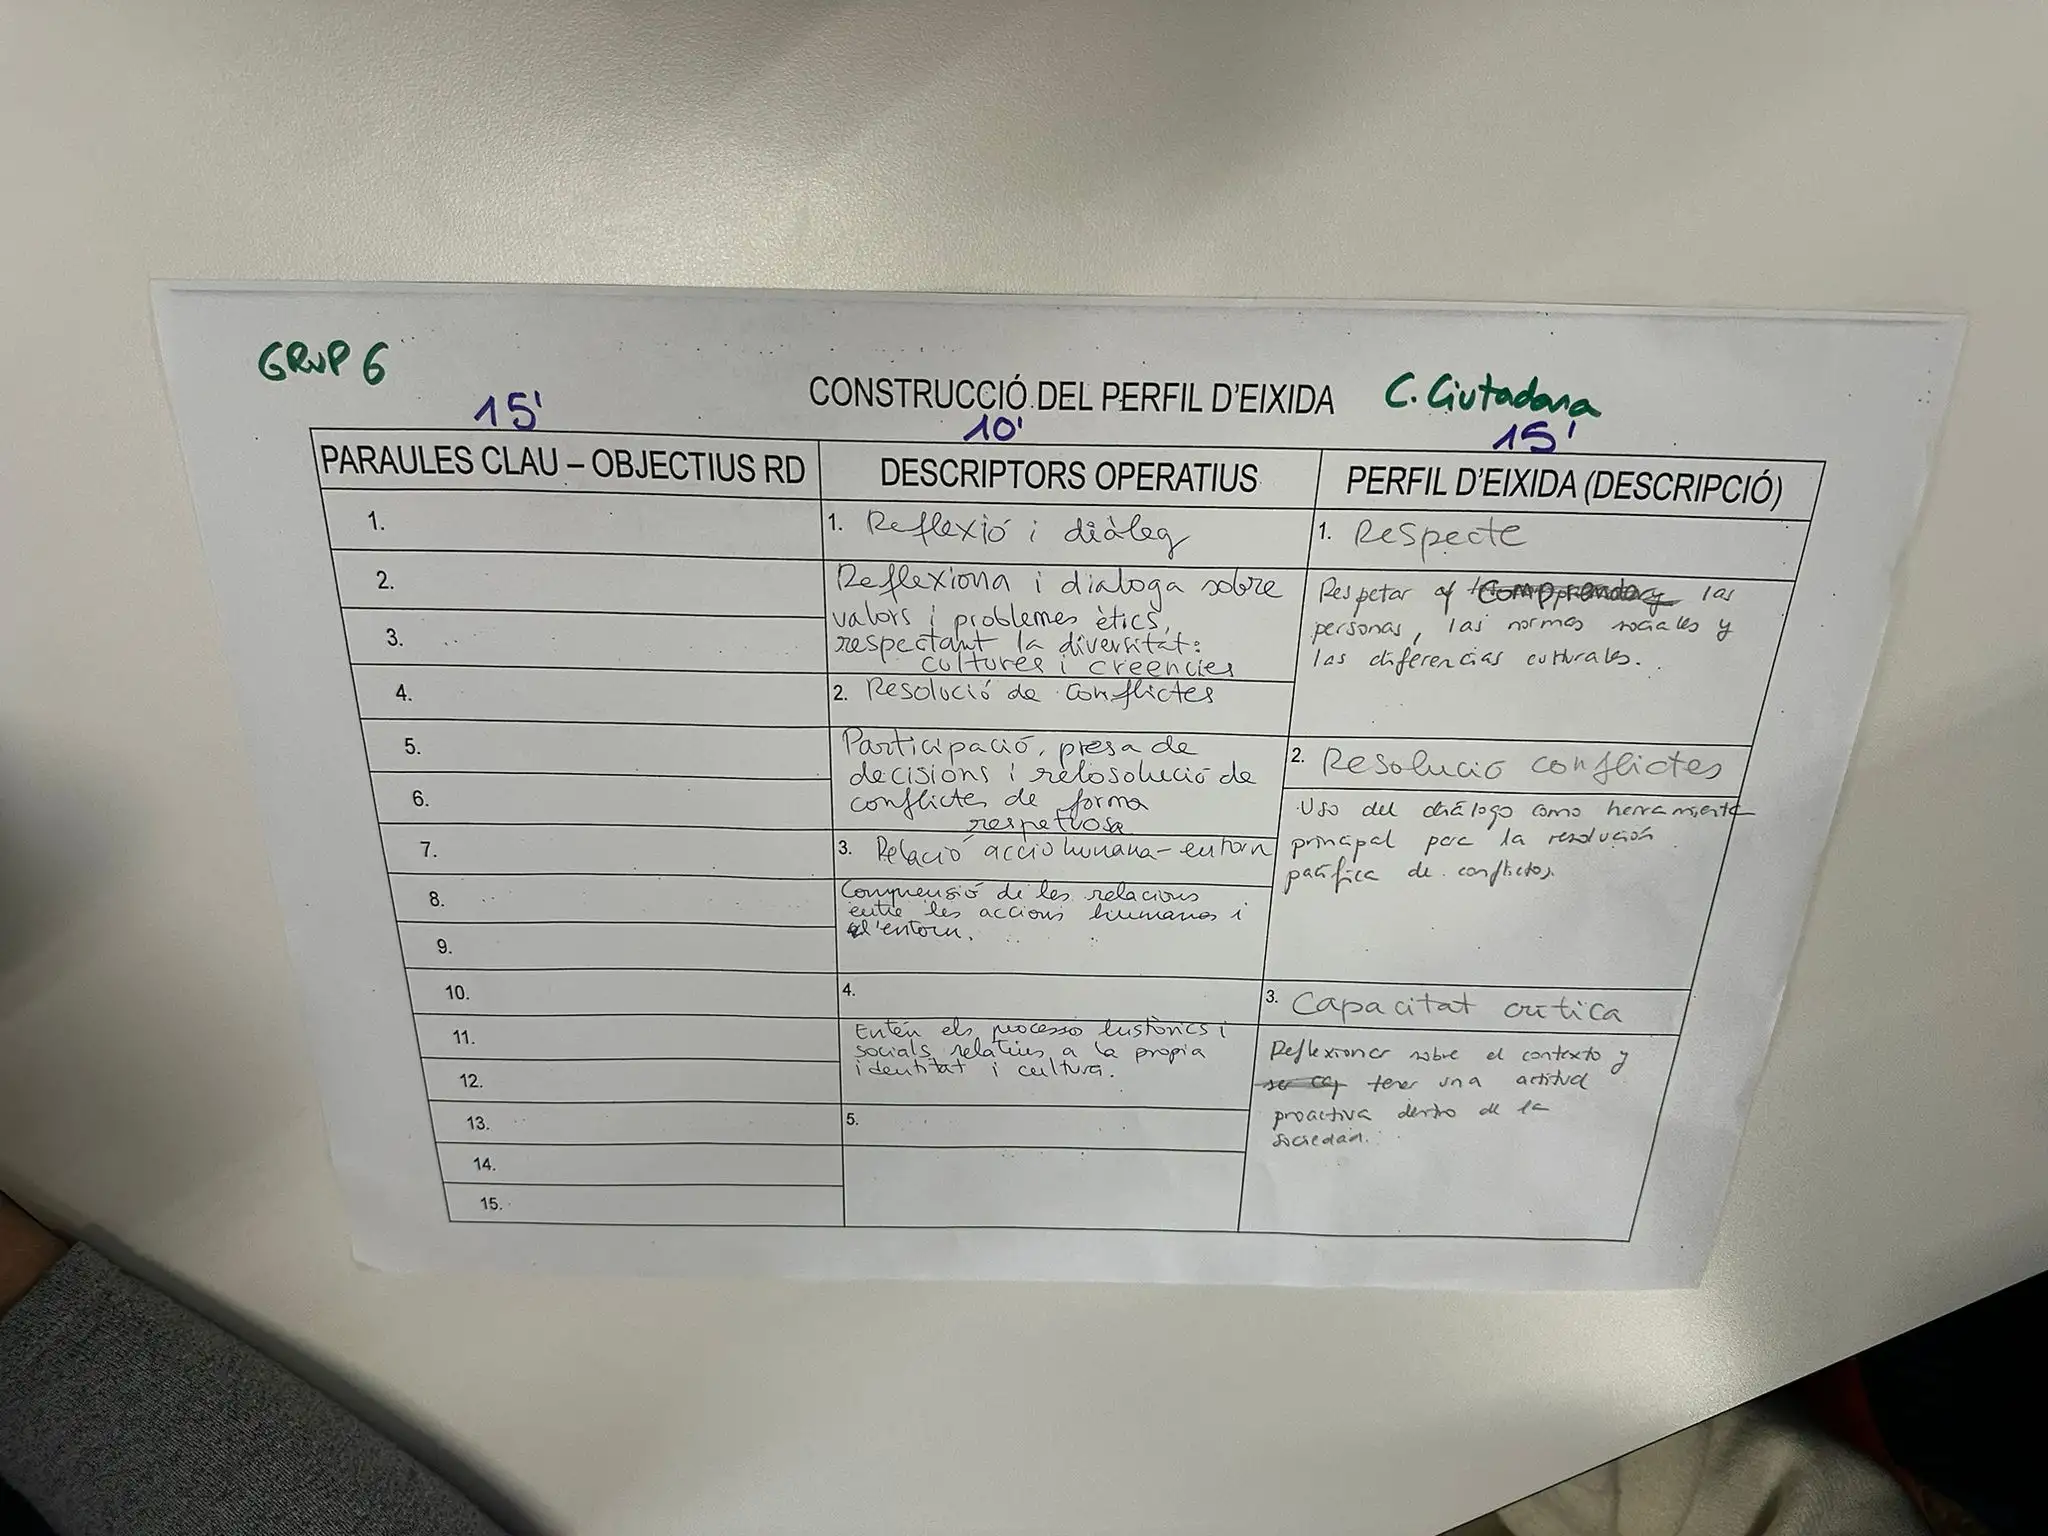 GRUP 6
CONSTRUCCIÓ DEL PERFIL D'EIXIDA
C. Ciutadana
15'
10'
15'
PARAULES CLAU – OBJECTIUS RD
1.
2.
3.
4.
5.
6.
7.
8.
9.
10.
11.
12.
13.
14.
15.
DESCRIPTORS OPERATIUS
1. Reflexió i diàleg
Reflexiona i dialoga sobre
valors i problemes ètics,
respectant la diversitat:
cultures i creències
2. Resolució de conflictes
Participació, presa de
decisions i relosolució de
conflictes de forma
respetuosa
3. Relació acció humana-entorn
Comprensió de les relacions
entre les accions humanes i
l'entorn.
4.
Entén els processos històrics i
socials relatius a la propia
identitat i cultura.
5.
PERFIL D'EIXIDA (DESCRIPCIÓ)
1. Respecte
Respetar a las
personas, las normas sociales y
las diferencias culturales.
2. Resolució conflictes
Uso del diálogo como herramienta
principal para la resolución
pacífica de conflictos.
3. Capacitat crítica
Reflexionar sobre el contexto y
tener una actitud
proactiva dentro de la
sociedad.